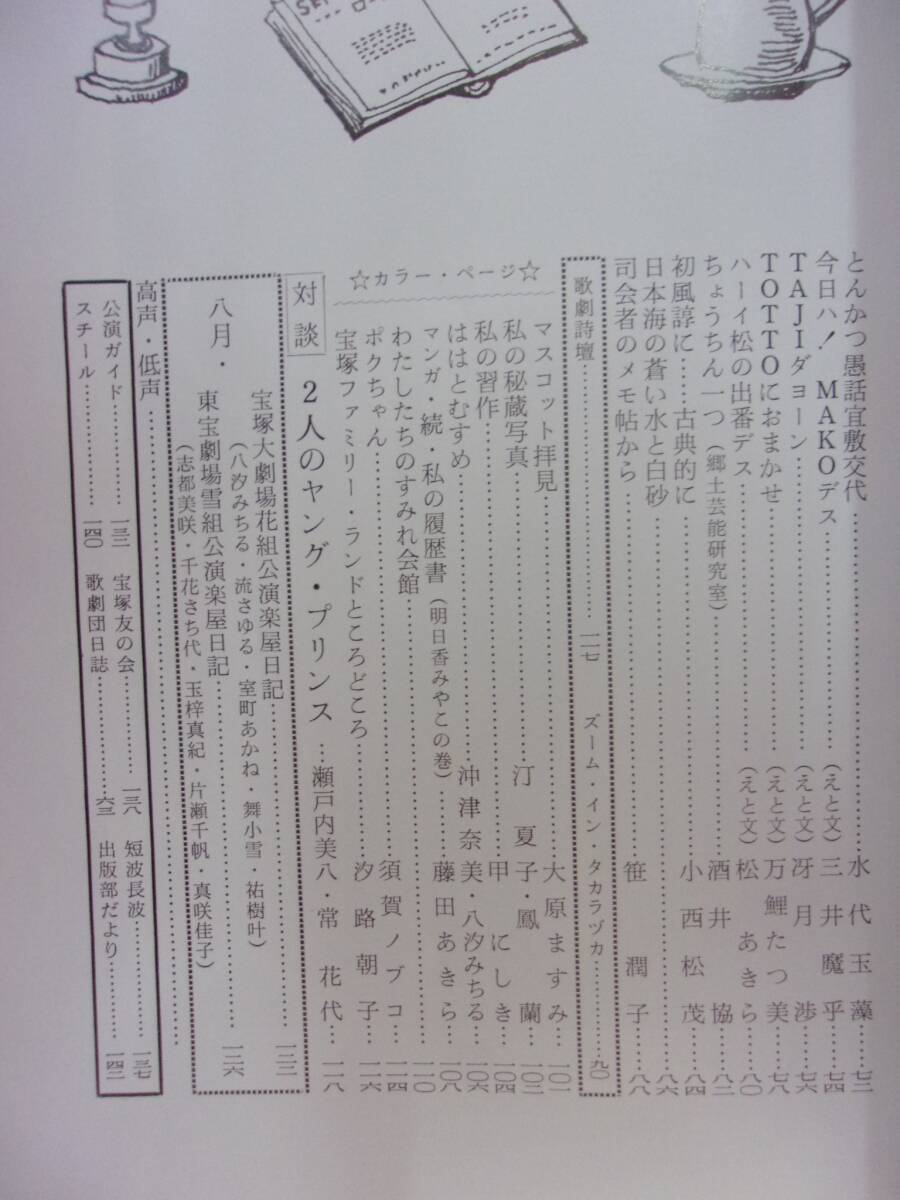 SE
とんかつ愚話宜敷交代……水代玉藻…七二
今日ハ！MAKOデス……(えと文)三井魔乎…七四
TAJIダヨーン……(えと文)冴月渉…七六
TOTTOにおまかせ……(えと文)万鯉たつ美…七八
ハーイ松の出番デス……(えと文)松あきら…八〇
ちょうちん一つ(郷土芸能研究室)……酒井協…八二
初風諄に……古典的に……小西松茂…八四
日本海の蒼い水と白砂……八六
司会者のメモ帖から……笹潤子…八八
歌劇詩壇……一一七
ズーム・イン・タカラヅカ……九〇
☆カラー・ページ☆
マスコット拝見……大原ますみ…一〇二
私の秘蔵写真……汀夏子・鳳蘭…一〇三
私の習作……甲にしき…一〇四
ははとむすめ……沖津奈美・八汐みちる…一〇六
マンガ・続・私の履歴書(明日香みやこの巻)……藤田あきら…一〇八
わたしたちのすみれ会館……一一〇
ボクちゃん……須賀ノブコ…一一四
宝塚ファミリー・ランドところどころ……汐路朝子…一一六
対談 2人のヤング・プリンス…瀬戸内美八・常花代…一一八
八月・
宝塚大劇場花組公演楽屋日記……一二二
(八汐みちる・流さゆる・室町あかね・舞小雪・祐樹叶)
東宝劇場雪組公演楽屋日記……一二六
(志都美咲・千花さち代・玉梓真紀・片瀬千帆・真咲佳子)
高声・低声……
公演ガイド……一三二
宝塚友の会……一三八
短波長波……一三七
スチール……一四〇
歌劇団日誌……六三
出版部だより……一四二